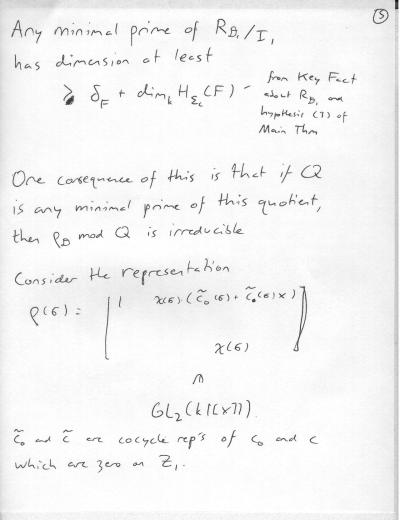 (5)
Any minimal prime of R_{D_1}/I_1
has dimension at least
≥ δ_F + dim_k H_{Σ_c}(F) - from Key Fact
about R_{D_1} and
hypothesis (7) of
Main Thm
One consequence of this is that if Q
is any minimal prime of this quotient,
then ρ_D mod Q is irreducible
Consider the representation
ρ(σ) = [ 1 χ(σ)·(c̃_0(σ) + c̃(σ)x) ]
χ(σ)
∩
GL_2(k[[x]]).
c̃_0 and c̃ are cocycle rep's of c_0 and c
which are zero on Z_1.